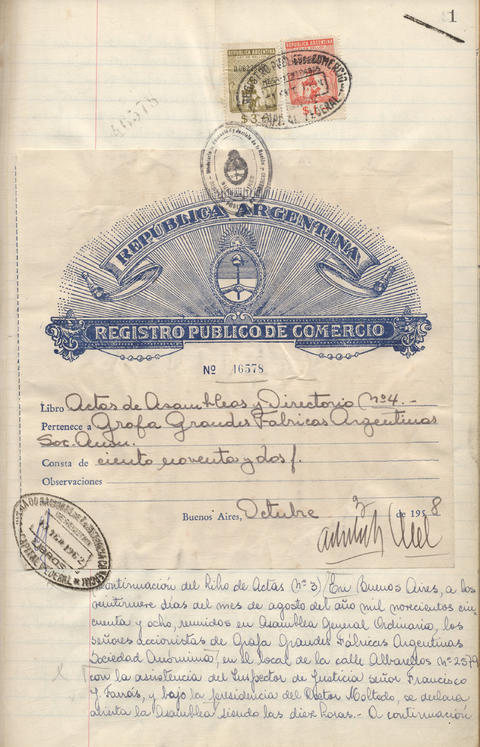 1
REPUBLICA ARGENTINA
REPUBLICA ARGENTINA
46578
REGISTRO PUBLICO DE COMERCIO
CAPITAL FEDERAL
$3
REPUBLICA ARGENTINA
REGISTRO PUBLICO DE COMERCIO
Nº 16578
Libro Actas de Asambleas y Directorio nº 4.-
Pertenece a Grafa Grandes Fabricas Argentinas
Soc. Anón.
Consta de ciento noventa y dos f.
Observaciones
Buenos Aires, Octubre 9 de 1958
CAPITAL FEDERAL
(Continuación del libro de Actas nº 3) En Buenos Aires, a los
veintinueve días del mes de agosto del año mil novecientos cin
cuenta y ocho, reunidos en Asamblea General Ordinaria, los
señores accionistas de Grafa Grandes Fábricas Argentinas
Sociedad Anónima, en el local de la calle Albarellos nº 2579
con la asistencia del Inspector de Justicia señor Francisco
y. Farrás, y bajo la presidencia del Doctor Moltedo, se declara
abierta la Asamblea siendo las diez horas.- A continuación